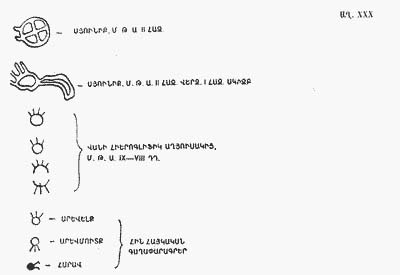 ԱՂ. XXX
— ՍՅՈՒՆԻՔ, Մ. Թ. Ա. II ՀԱԶ.
— ՍՅՈՒՆԻՔ, Մ. Թ. Ա. II ՀԱԶ. ՎԵՐՋ. I ՀԱԶ. ՍԿԻԶԲ
ՎԱՆԻ ՀԻԵՐՈԳԼԻՖԻԿ ԱՂՅՈՒՍԱԿԻՑ,
Մ. Թ. Ա. IX—VIII ԴԴ.
— ԱՐԵՎԵԼՔ
— ԱՐԵՎՄՈՒՏՔ
— ՀԱՐԱՎ
ՀԻՆ ՀԱՅԿԱԿԱՆ
ԳԱՂԱՓԱՐԱԳՐԵՐ